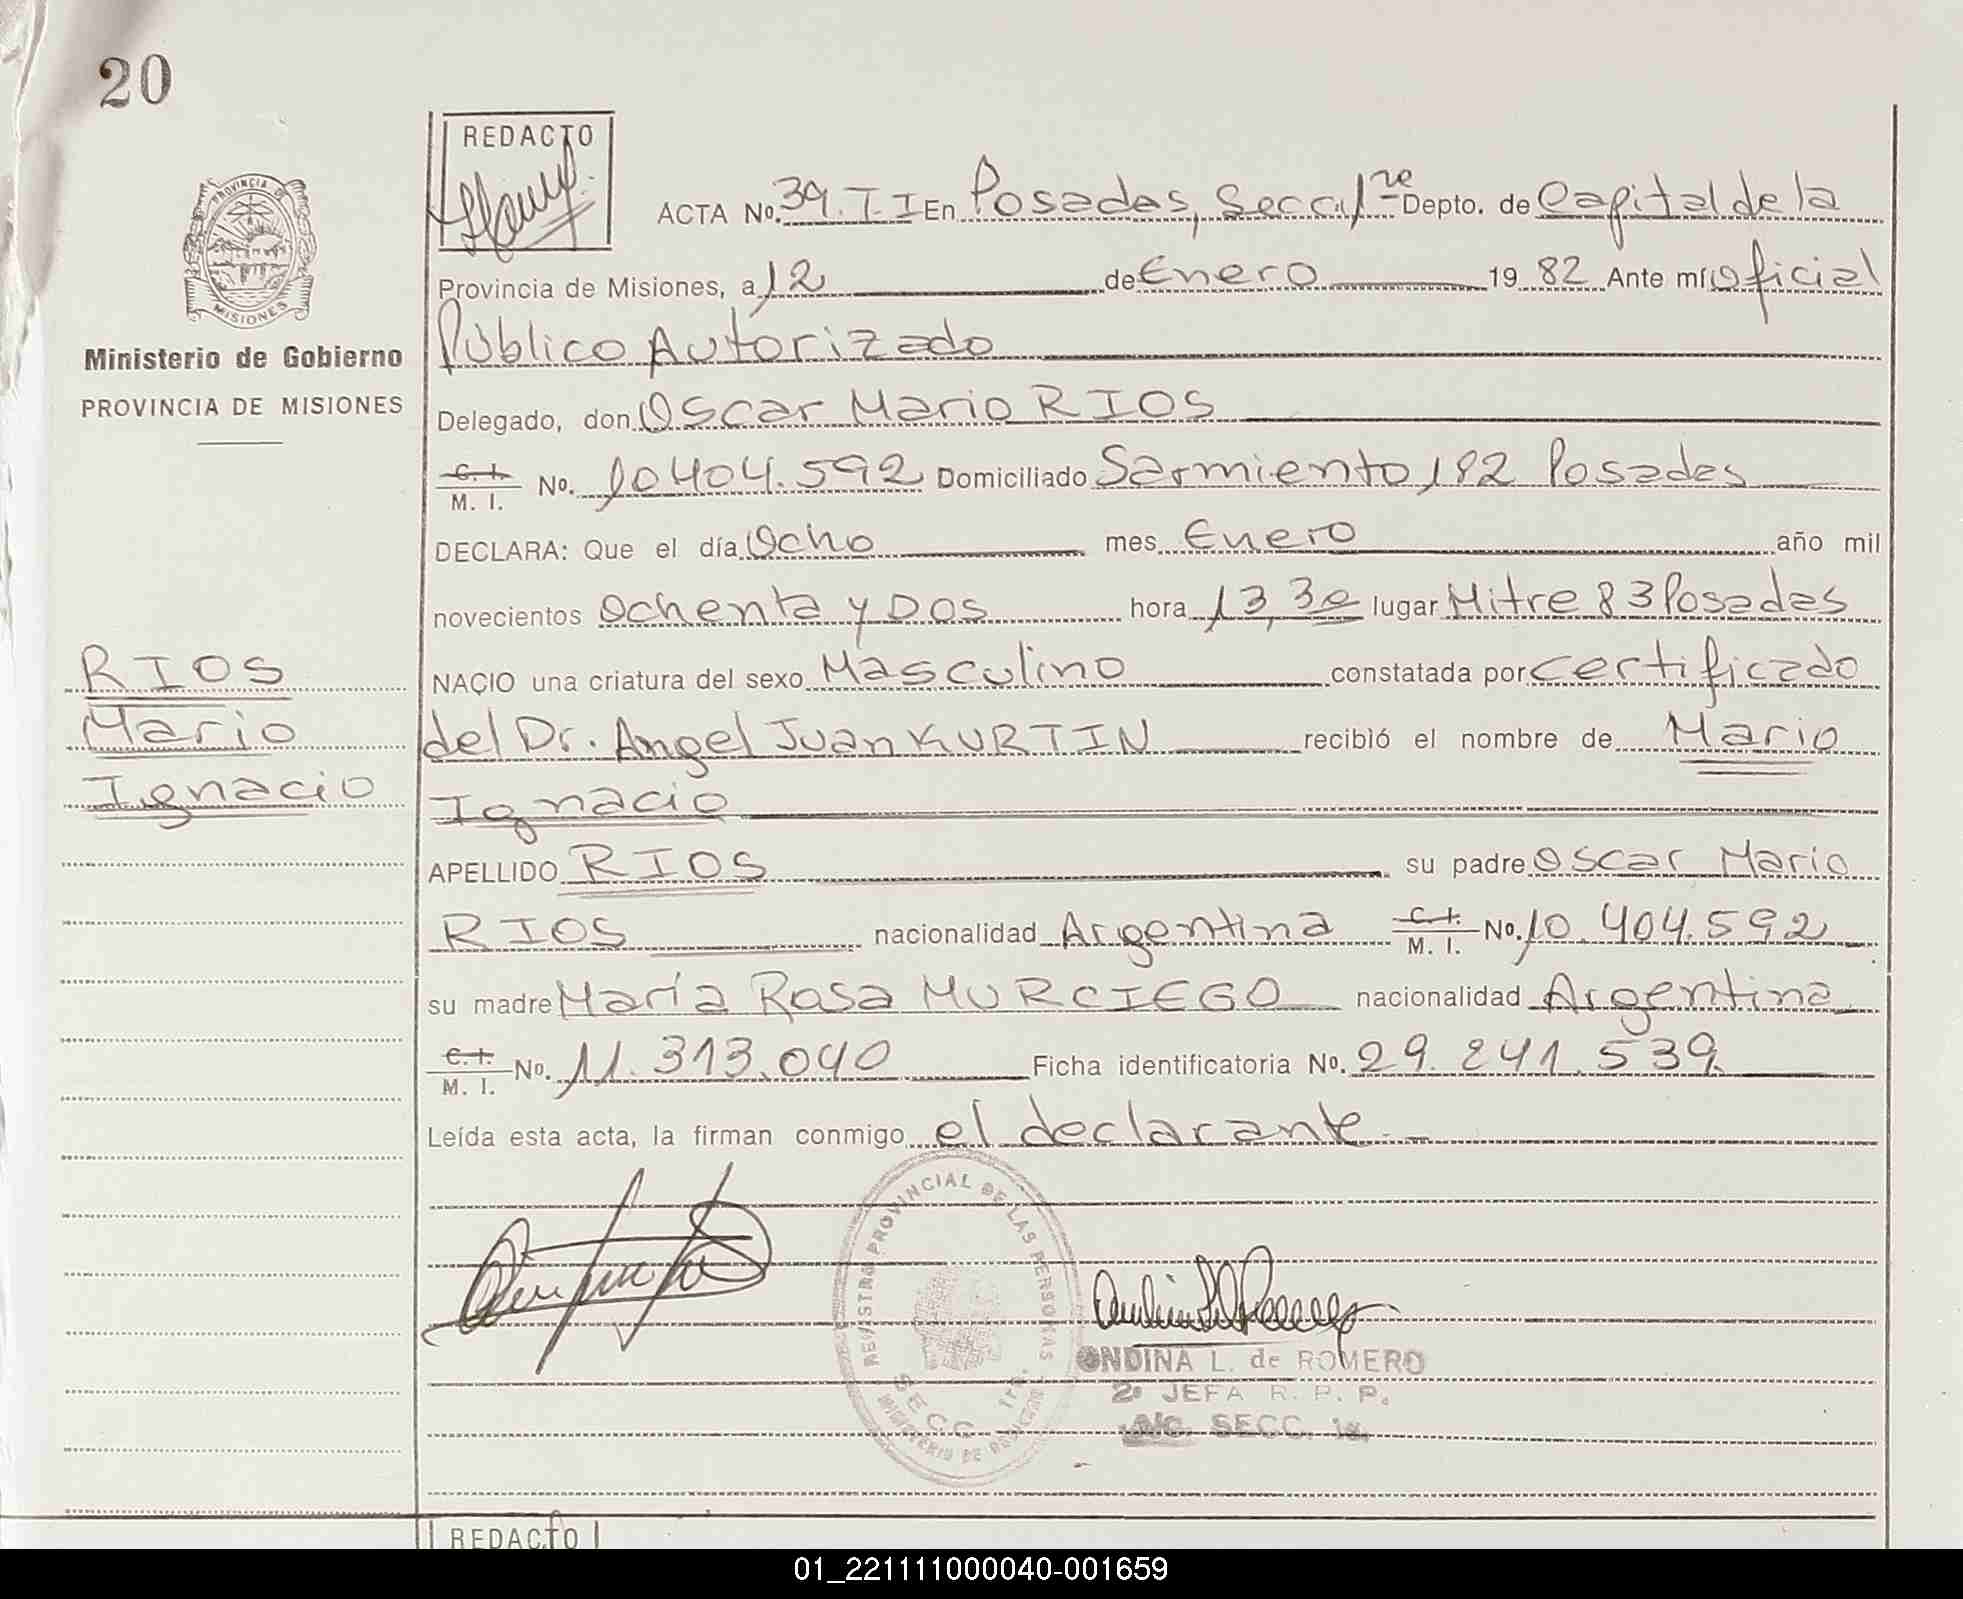 20
REDACTO
PROVINCIA DE
MISIONES
Ministerio de Gobierno
PROVINCIA DE MISIONES
ACTA No. 39. T. I En Posadas, Secc. 1re Depto. de Capital de la
Provincia de Misiones, a 12 de Enero 19 82 Ante mí Oficial
Público Autorizado
Delegado, don Oscar Mario RIOS
C. I.
M. I. No. 10404.592 Domiciliado Sarmiento 192 Posadas
DECLARA: Que el día Ocho mes Enero año mil
novecientos Ochenta y Dos hora 13,30 lugar Mitre 83 Posadas
NACIO una criatura del sexo Masculino constatada por certificado
del Dr. Angel Juan KURTIN recibió el nombre de Mario
Ignacio
APELLIDO RIOS su padre Oscar Mario
RIOS nacionalidad Argentina C. I.
M. I. No. 10.404.592
su madre María Rosa MURCIEGO nacionalidad Argentina
C. I.
M. I. No. 11.313.040 Ficha identificatoria No. 29.241.539
Leída esta acta, la firman conmigo el declarante
RIOS
Mario
Ignacio
REGISTRO PROVINCIAL DE LAS PERSONAS
SECC. 1ra.
ONDINA L. de ROMERO
2º JEFA R. P. P.
A/C. SECC. 1a.
REDACTO
01_221111000040-001659